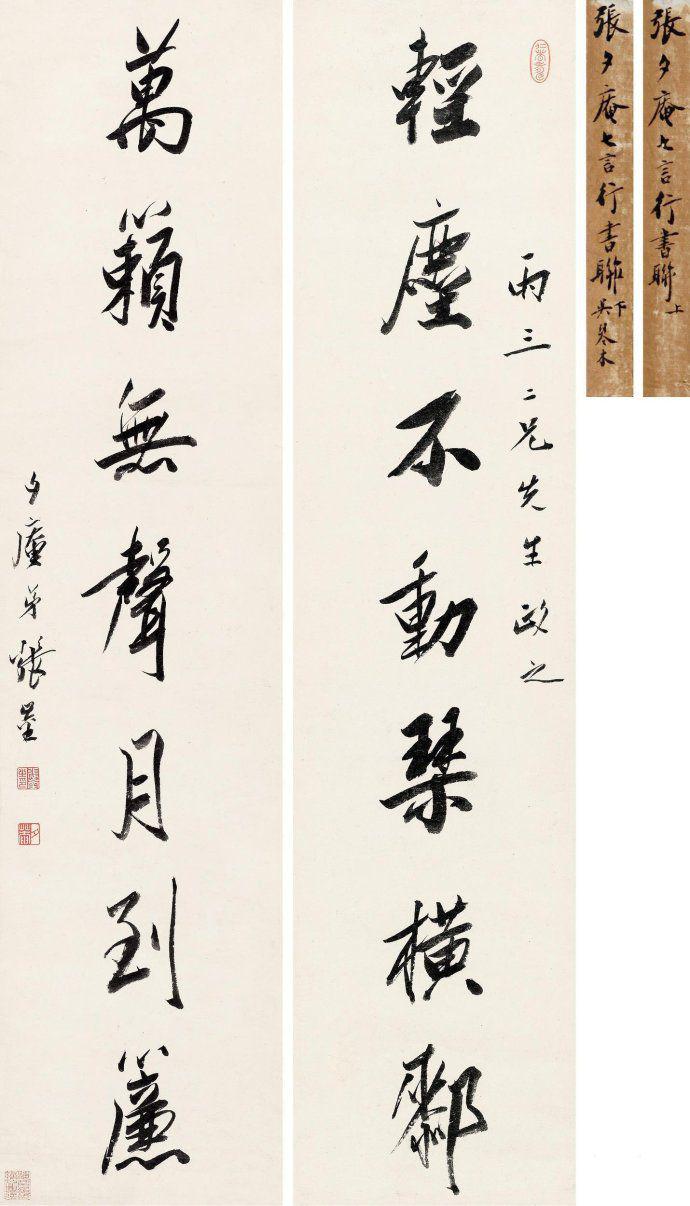 張夕庵七言行書聯上
張夕庵七言行書聯下 吳琴木
雨三二兄先生政之
輕塵不動琴橫䣛
萬籟無聲月到簾
夕庵弟張崟